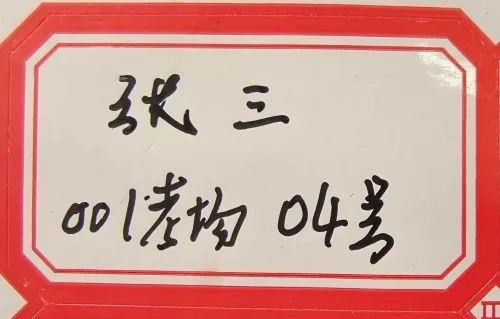 张三
001考场 04号